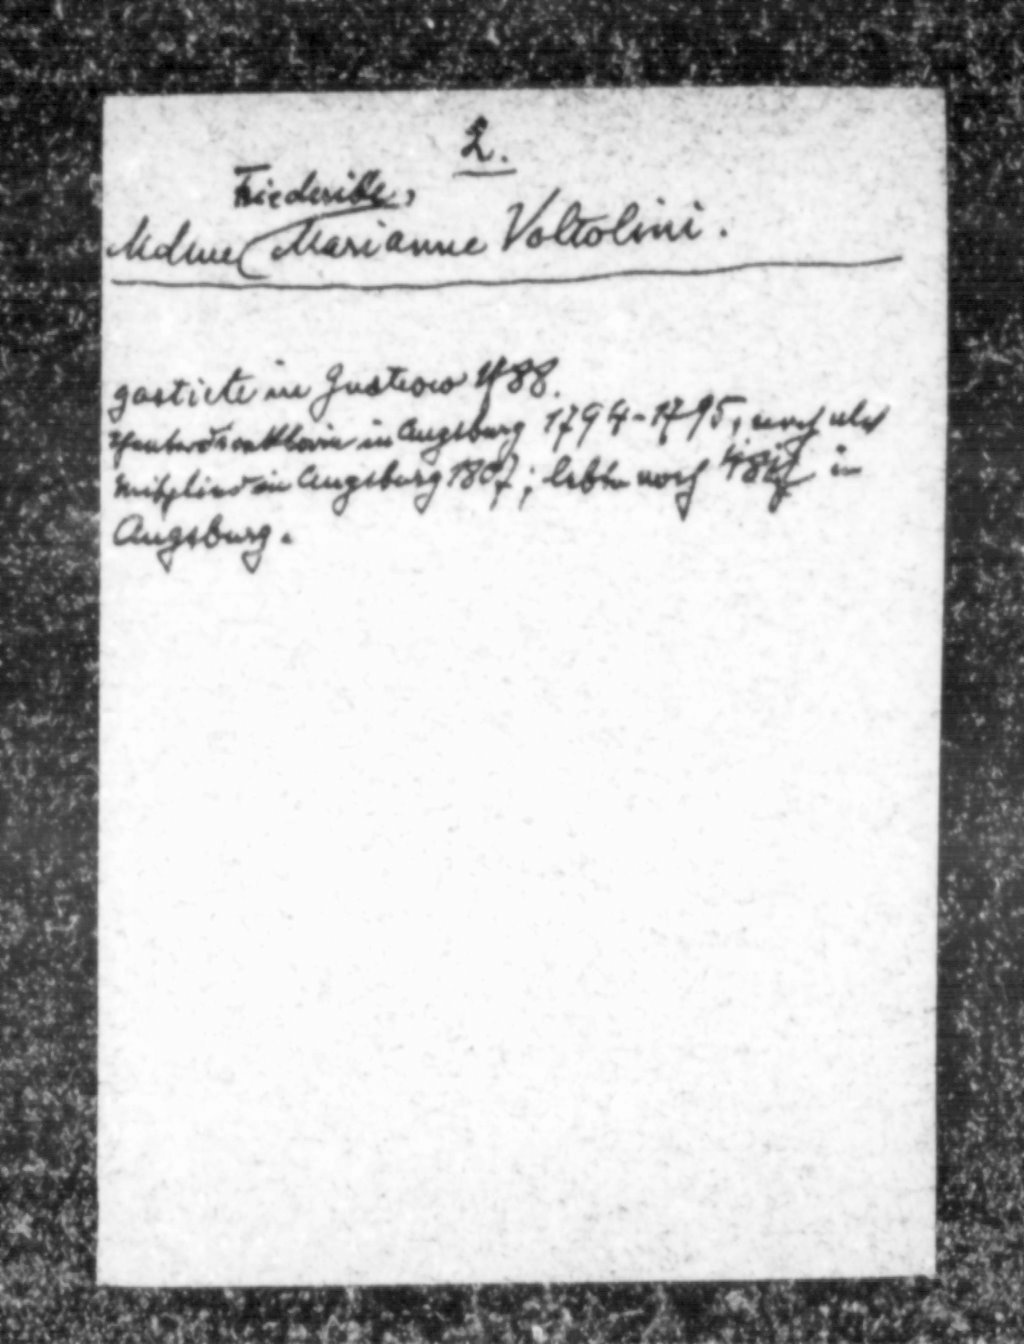 2.
Friederike,
Mdme Marianne Voltolini.
gastirte in Gustrow 1788.
Theaterdirektorin in Augsburg 1794-1795, noch als
Mitglied in Augsburg 1807; lebte noch in
Augsburg.